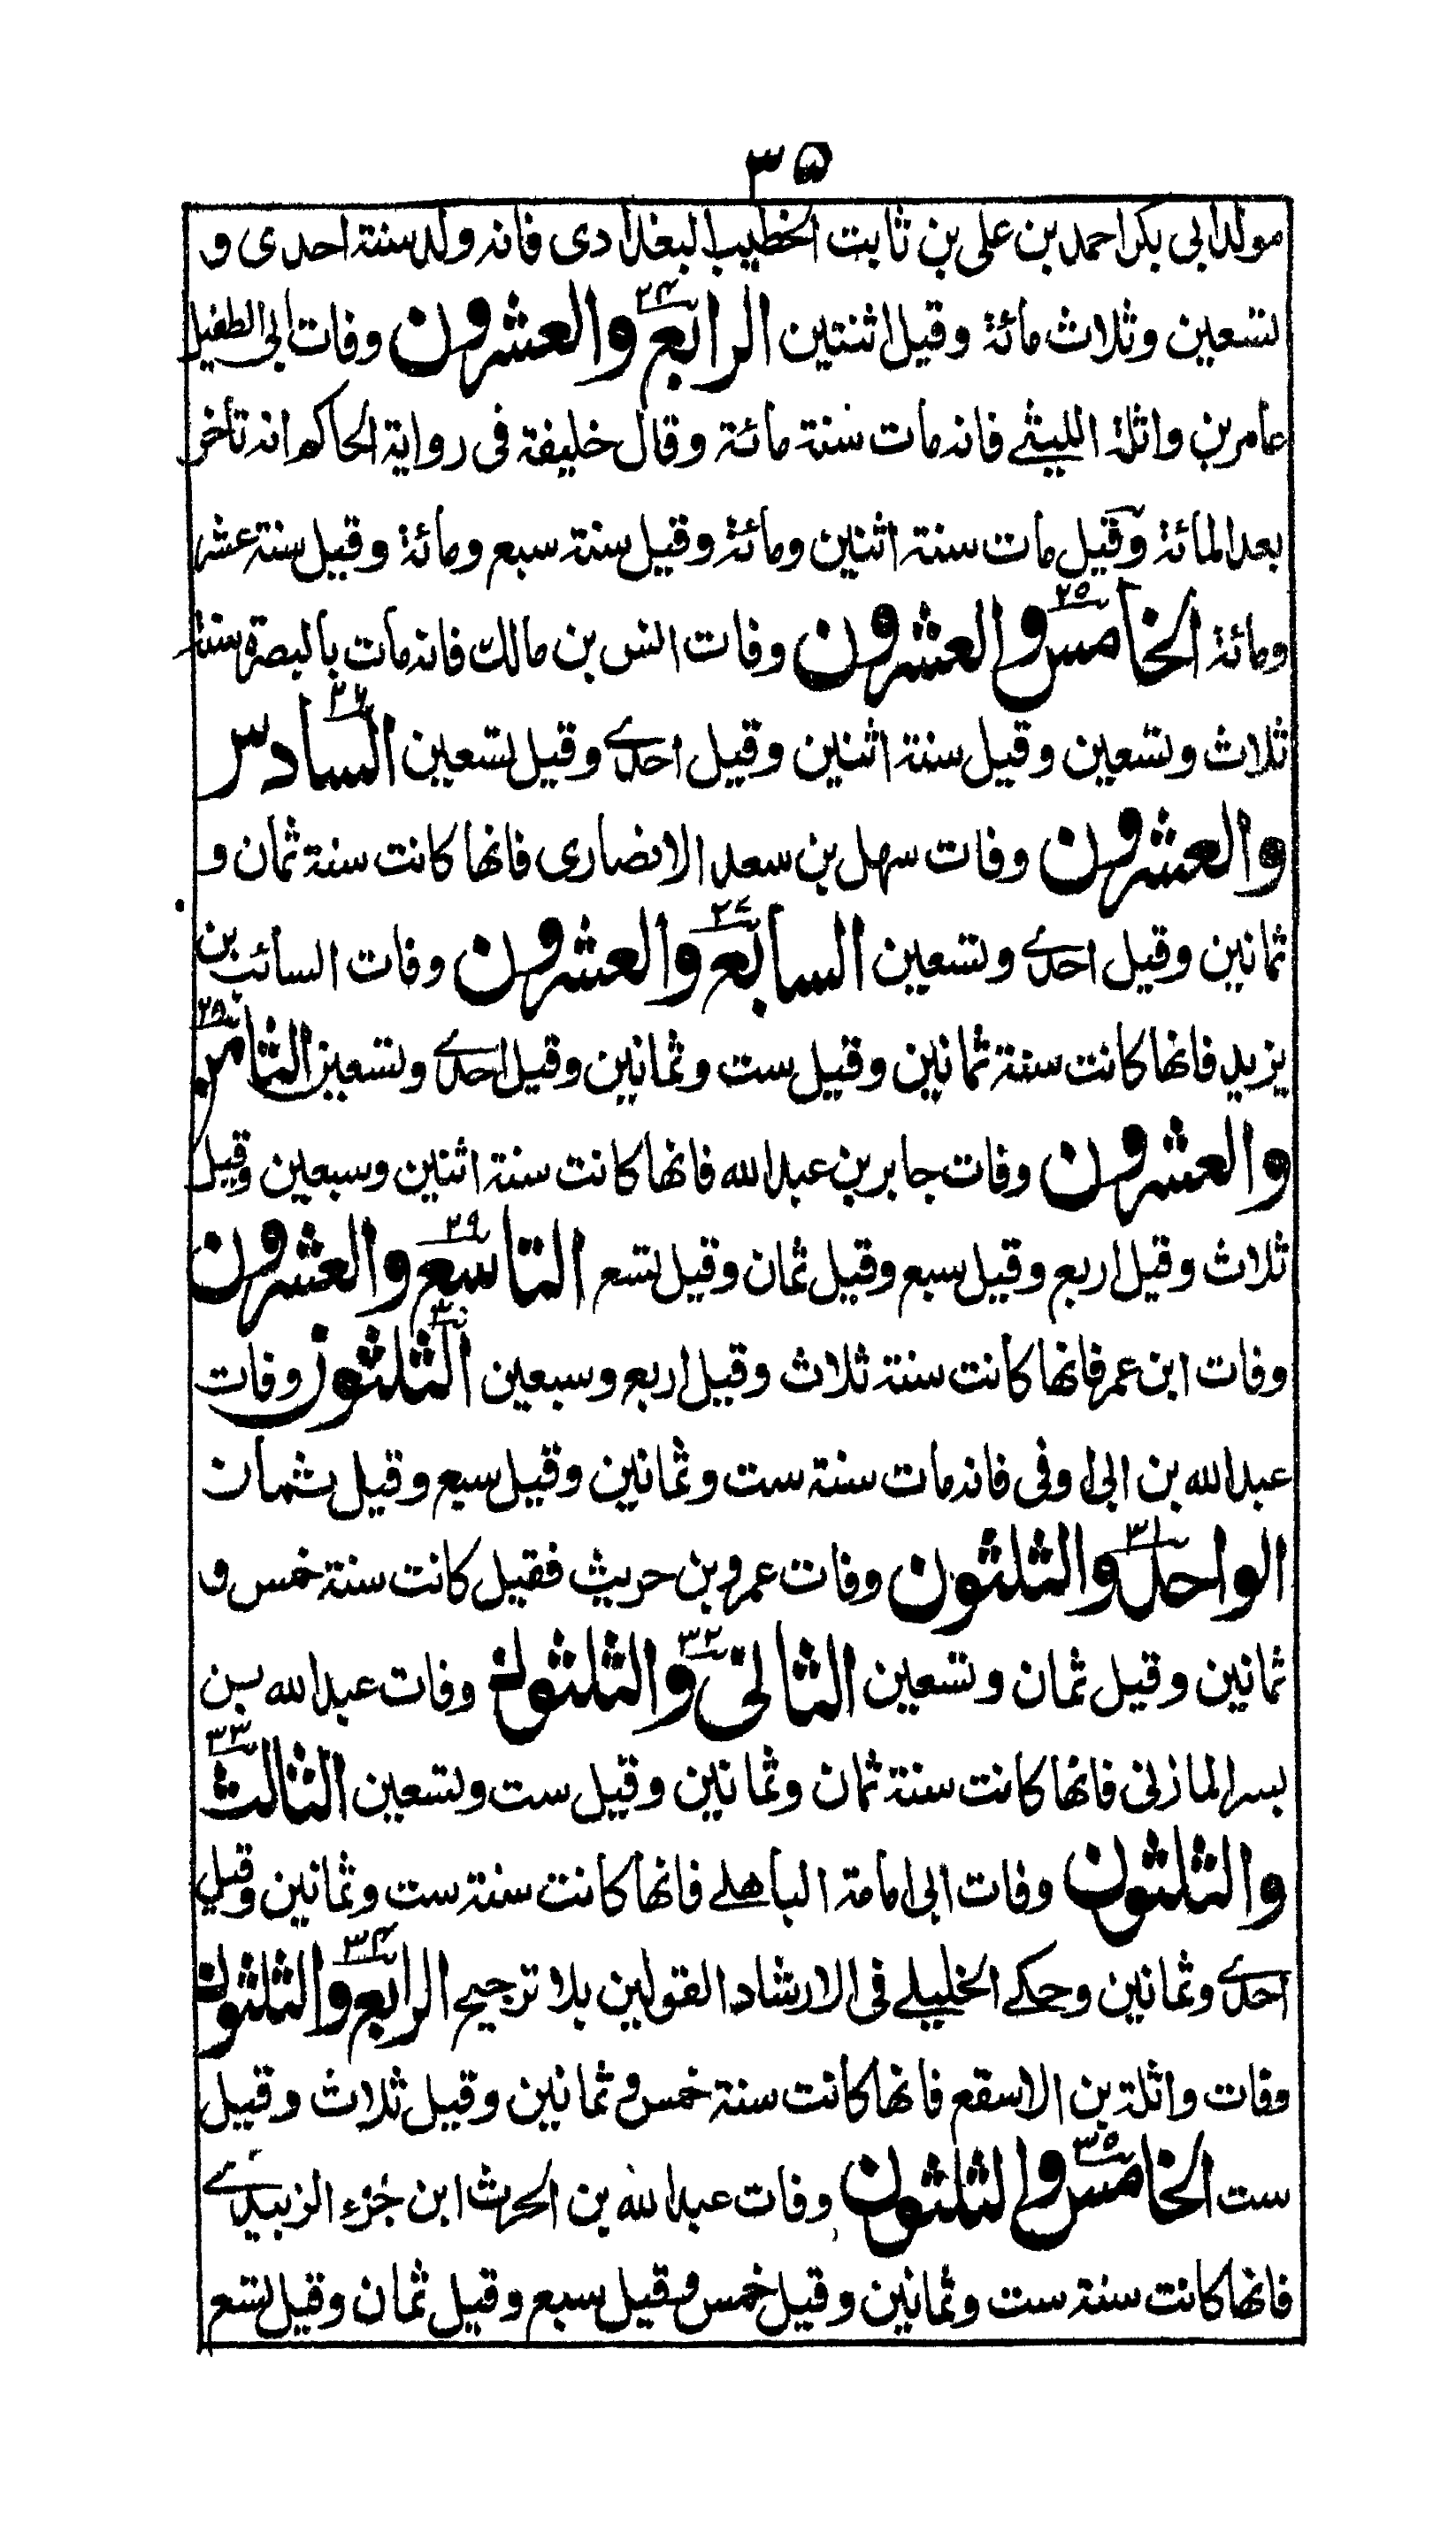 ٣٥
مولد ابی بکر احمد بن علی بن ثابت الخطیب البغدادی فانه ولد سنة احدی و
تسعین وثلاث مائة وقیل اثنتین الرابع والعشرون وفات ابی الطفیل
٢٤
عامر بن واثلة اللیثے فانه مات سنة مائة وقال خلیفة فی روایة الحاکم انه تأخر
بعد المائة وقیل مات سنة اثنین ومائة وقیل سنة سبع ومائة وقیل سنة عشر
ومائة الخامس والعشرون وفات انس بن مالك فانه مات بالبصرة سنة
٢٥
ثلاث وتسعین وقیل سنة اثنین وقیل احدے وقیل تسعین السادس
٢٦
والعشرون وفات سهل بن سعد الانصاری فانها کانت سنة ثمان و
ثمانین وقیل احدے وتسعین السابع والعشرون وفات السائب بن
٢٧
یزید فانها کانت سنة ثمانین وقیل ست وثمانین وقیل احدے وتسعین الثامن
٢٨
والعشرون وفات جابر بن عبد الله فانها کانت سنة اثنین وسبعین وقیل
ثلاث وقیل اربع وقیل سبع وقیل ثمان وقیل تسع التاسع والعشرون
٢٩
وفات ابن عمر فانها کانت سنة ثلاث وقیل اربع وسبعین الثلثون وفات
٣٠
عبد الله بن ابی اوفی فانه مات سنة ست وثمانین وقیل سبع وقیل ثمان
الواحد والثلثون وفات عمرو بن حریث فقیل کانت سنة خمس و
٣١
ثمانین وقیل ثمان وتسعین الثانی والثلثون وفات عبد الله بن
٣٢
بسر المازنی فانها کانت سنة ثمان وثمانین وقیل ست وتسعین الثالث
٣٣
والثلثون وفات ابی امامة الباهلے فانها کانت سنة ست وثمانین وقیل
احدے وثمانین وحکے الخلیلے فی الارشاد القولین بلا ترجیح الرابع والثلثون
٣٤
وفات واثلة بن الاسقع فانها کانت سنة خمس وثمانین وقیل ثلاث وقیل
ست الخامس والثلثون وفات عبد الله بن الحرث ابن جُزء الزبیدے
٣٥
فانها کانت سنة ست وثمانین وقیل خمس وقیل سبع وقیل ثمان وقیل تسع